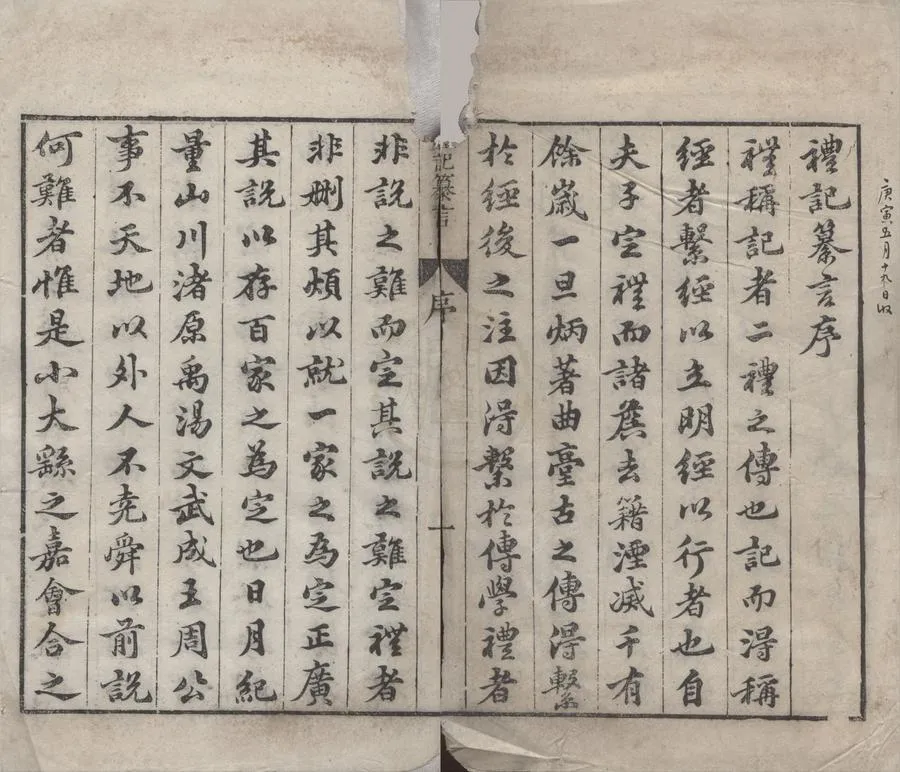 庚寅五月十九日收
禮記纂言序
禮稱記者二禮之傳也記而得稱
經者繫經以立明經以行者也自
夫子定禮而諸矦去籍湮滅千有
餘歲一旦炳著曲臺古之傳得繫
於經後之注因得繫於傳學禮者
記纂言
序
一
非說之難而定其說之難定禮者
非刪其煩以就一家之為定正廣
其說以存百家之為定也日月紀
量山川渚原禹湯文武成王周公
事不天地以外人不堯舜以前說
何難者惟是小大繇之嘉會合之